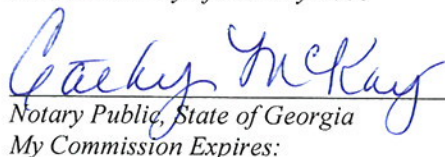 Cathy McKay
Notary Public, State of Georgia
My Commission Expires: